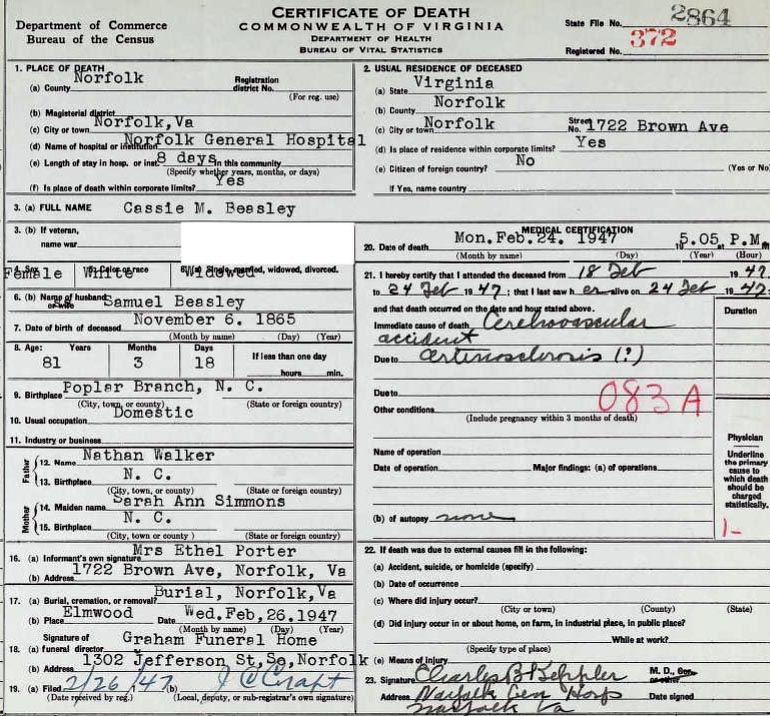 CERTIFICATE OF DEATH
COMMONWEALTH OF VIRGINIA
DEPARTMENT OF HEALTH
BUREAU OF VITAL STATISTICS
Department of Commerce
Bureau of the Census
State File No. 2864
Registered No. 372
1. PLACE OF DEATH
(a) County Norfolk Registration district No.
(For reg. use)
(b) Magisterial district
(c) City or town Norfolk,Va
(d) Name of hospital or institution Norfolk General Hospital
(e) Length of stay in hosp. or inst. 8 days In this community
(Specify whether years, months, or days)
(f) Is place of death within corporate limits? Yes
2. USUAL RESIDENCE OF DECEASED
(a) State Virginia
(b) County Norfolk
(c) City or town Norfolk Street No. 1722 Brown Ave
(d) Is place of residence within corporate limits? Yes
(e) Citizen of foreign country? No (Yes or No)
If Yes, name country
3. (a) FULL NAME Cassie M. Beasley
3. (b) If veteran,
name war
4. Sex Female 5. Color or race White 6. (a) Single, married, widowed, divorced. Widowed
6. (b) Name of husband or wife Samuel Beasley
7. Date of birth of deceased November 6. 1865
(Month by name) (Day) (Year)
8. Age: Years Months Days If less than one day
81 3 18 hours min.
9. Birthplace Poplar Branch, N. C.
(City, town, or county) (State or foreign country)
10. Usual occupation Domestic
11. Industry or business
Father
12. Name Nathan Walker
13. Birthplace N. C.
(City, town, or county) (State or foreign country)
Mother
14. Maiden name Sarah Ann Simmons
15. Birthplace N. C.
(City, town, or county) (State or foreign country)
16. (a) Informant's own signature Mrs Ethel Porter
(b) Address 1722 Brown Ave, Norfolk, Va
17. (a) Burial, cremation, or removal? Burial, Norfolk,Va
(b) Place Elmwood Date Wed.Feb,26.1947
(Month by name) (Day) (Year)
Signature of
18. (a) funeral director Graham Funeral Home
(b) Address 1302 Jefferson St,So,Norfolk
19. (a) Filed 2/26/47 (b) J C Craft
(Date received by reg.) (Local, deputy, or sub-registrar's own signature)
MEDICAL CERTIFICATION
20. Date of death Mon.Feb.24. 1947 5.05 P.M
(Month by name) (Day) (Year) (Hour)
21. I hereby certify that I attended the deceased from 18 Feb 1947
to 24 Feb 1947; that I last saw her alive on 24 Feb 1947
and that death occurred on the date and hour stated above.
Duration
Immediate cause of death Cerebrovascular
accident
Due to arteriosclerosis (?)
Due to
083 A
Other conditions
(Include pregnancy within 3 months of death)
Name of operation
Date of operation Major findings: (a) of operations
(b) of autopsy none
Physician
Underline the primary cause to which death should be charged statistically.
1-
22. If death was due to external causes fill in the following:
(a) Accident, suicide, or homicide (specify)
(b) Date of occurrence
(c) Where did injury occur?
(City or town) (County) (State)
(d) Did injury occur in or about home, on farm, in industrial place, in public place?
While at work?
(Specify type of place)
(e) Means of injury
23. Signature Charles B Keppler M. D.,
Address Norfolk Gen Hosp Date signed
Norfolk Va